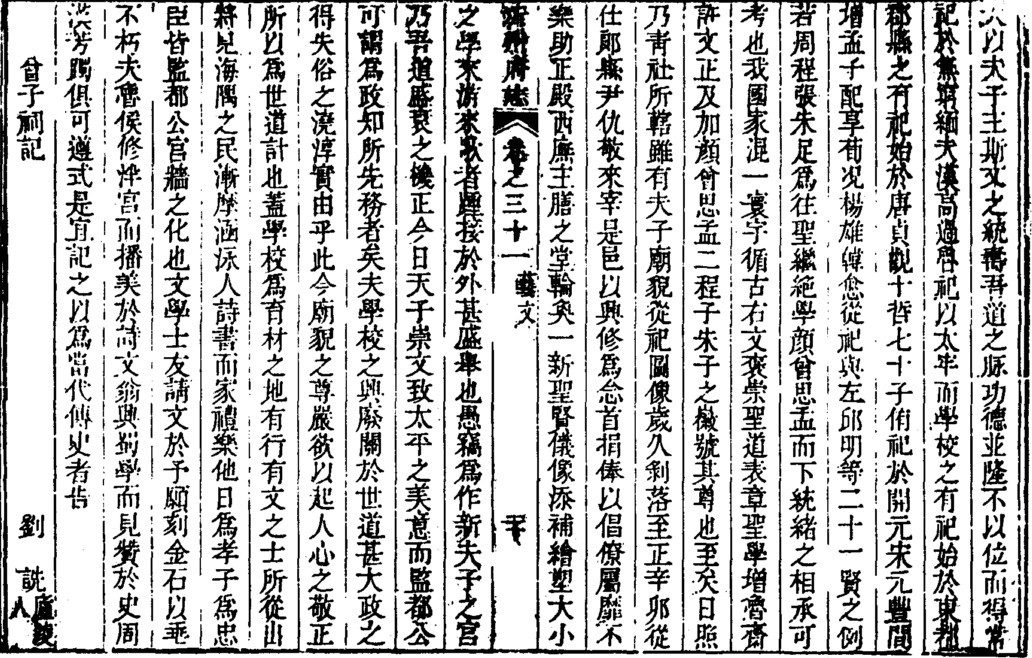 夫以夫子主斯文之統壽吾道之脉功德並隆不以位而得常
祀於無窮緬夫漢高過魯祀以太牢而學校之有祀始於東都
郡縣之有祀始於唐貞觀十哲七十子侑祀於開元宋元豐間
增孟子配享荀况楊雄韓愈從祀與左邱明等二十一賢之例
若周程張朱足爲往聖繼絶學顔曾思孟而下統緒之相承可
考也我國家混一寰宇循古右文褒崇聖道表章聖學增魯齋
許文正及加顔曾思孟二程子朱子之徽號其尊也至矣日照
乃青社所轄雖有夫子廟貌從祀圖像歲久剝落至正辛夘從
仕郎縣尹仇敬來宰是邑以興修爲念首捐俸以倡僚屬靡不
樂助正殿西廡主膳之堂輪奐一新聖賢儀像添補繪塑大小
沂州府志 卷之三十一 藝文
之學來游來歌者踵接於外甚盛舉也愚竊爲作新夫子之宫
乃吾道盛衰之機正今日天子崇文致太平之美意而監都公
可謂爲政知所先務者矣夫學校之興廢關於世道甚大政之
得失俗之澆淳實由乎此今廟貌之尊嚴欲以起人心之敬正
所以爲世道計也蓋學校爲育材之地有行有文之士所從出
將見海隅之民漸摩涵泳人詩書而家禮樂他日爲孝子爲忠
臣皆監都公宫牆之化也文學士友請文於予願刻金石以垂
不朽夫魯侯修泮宫而播美於詩文翁興蜀學而見贊於史周
芳躅俱可遵式是宜記之以爲當代傳史者告
曾子祠記 劉詵廬陵人